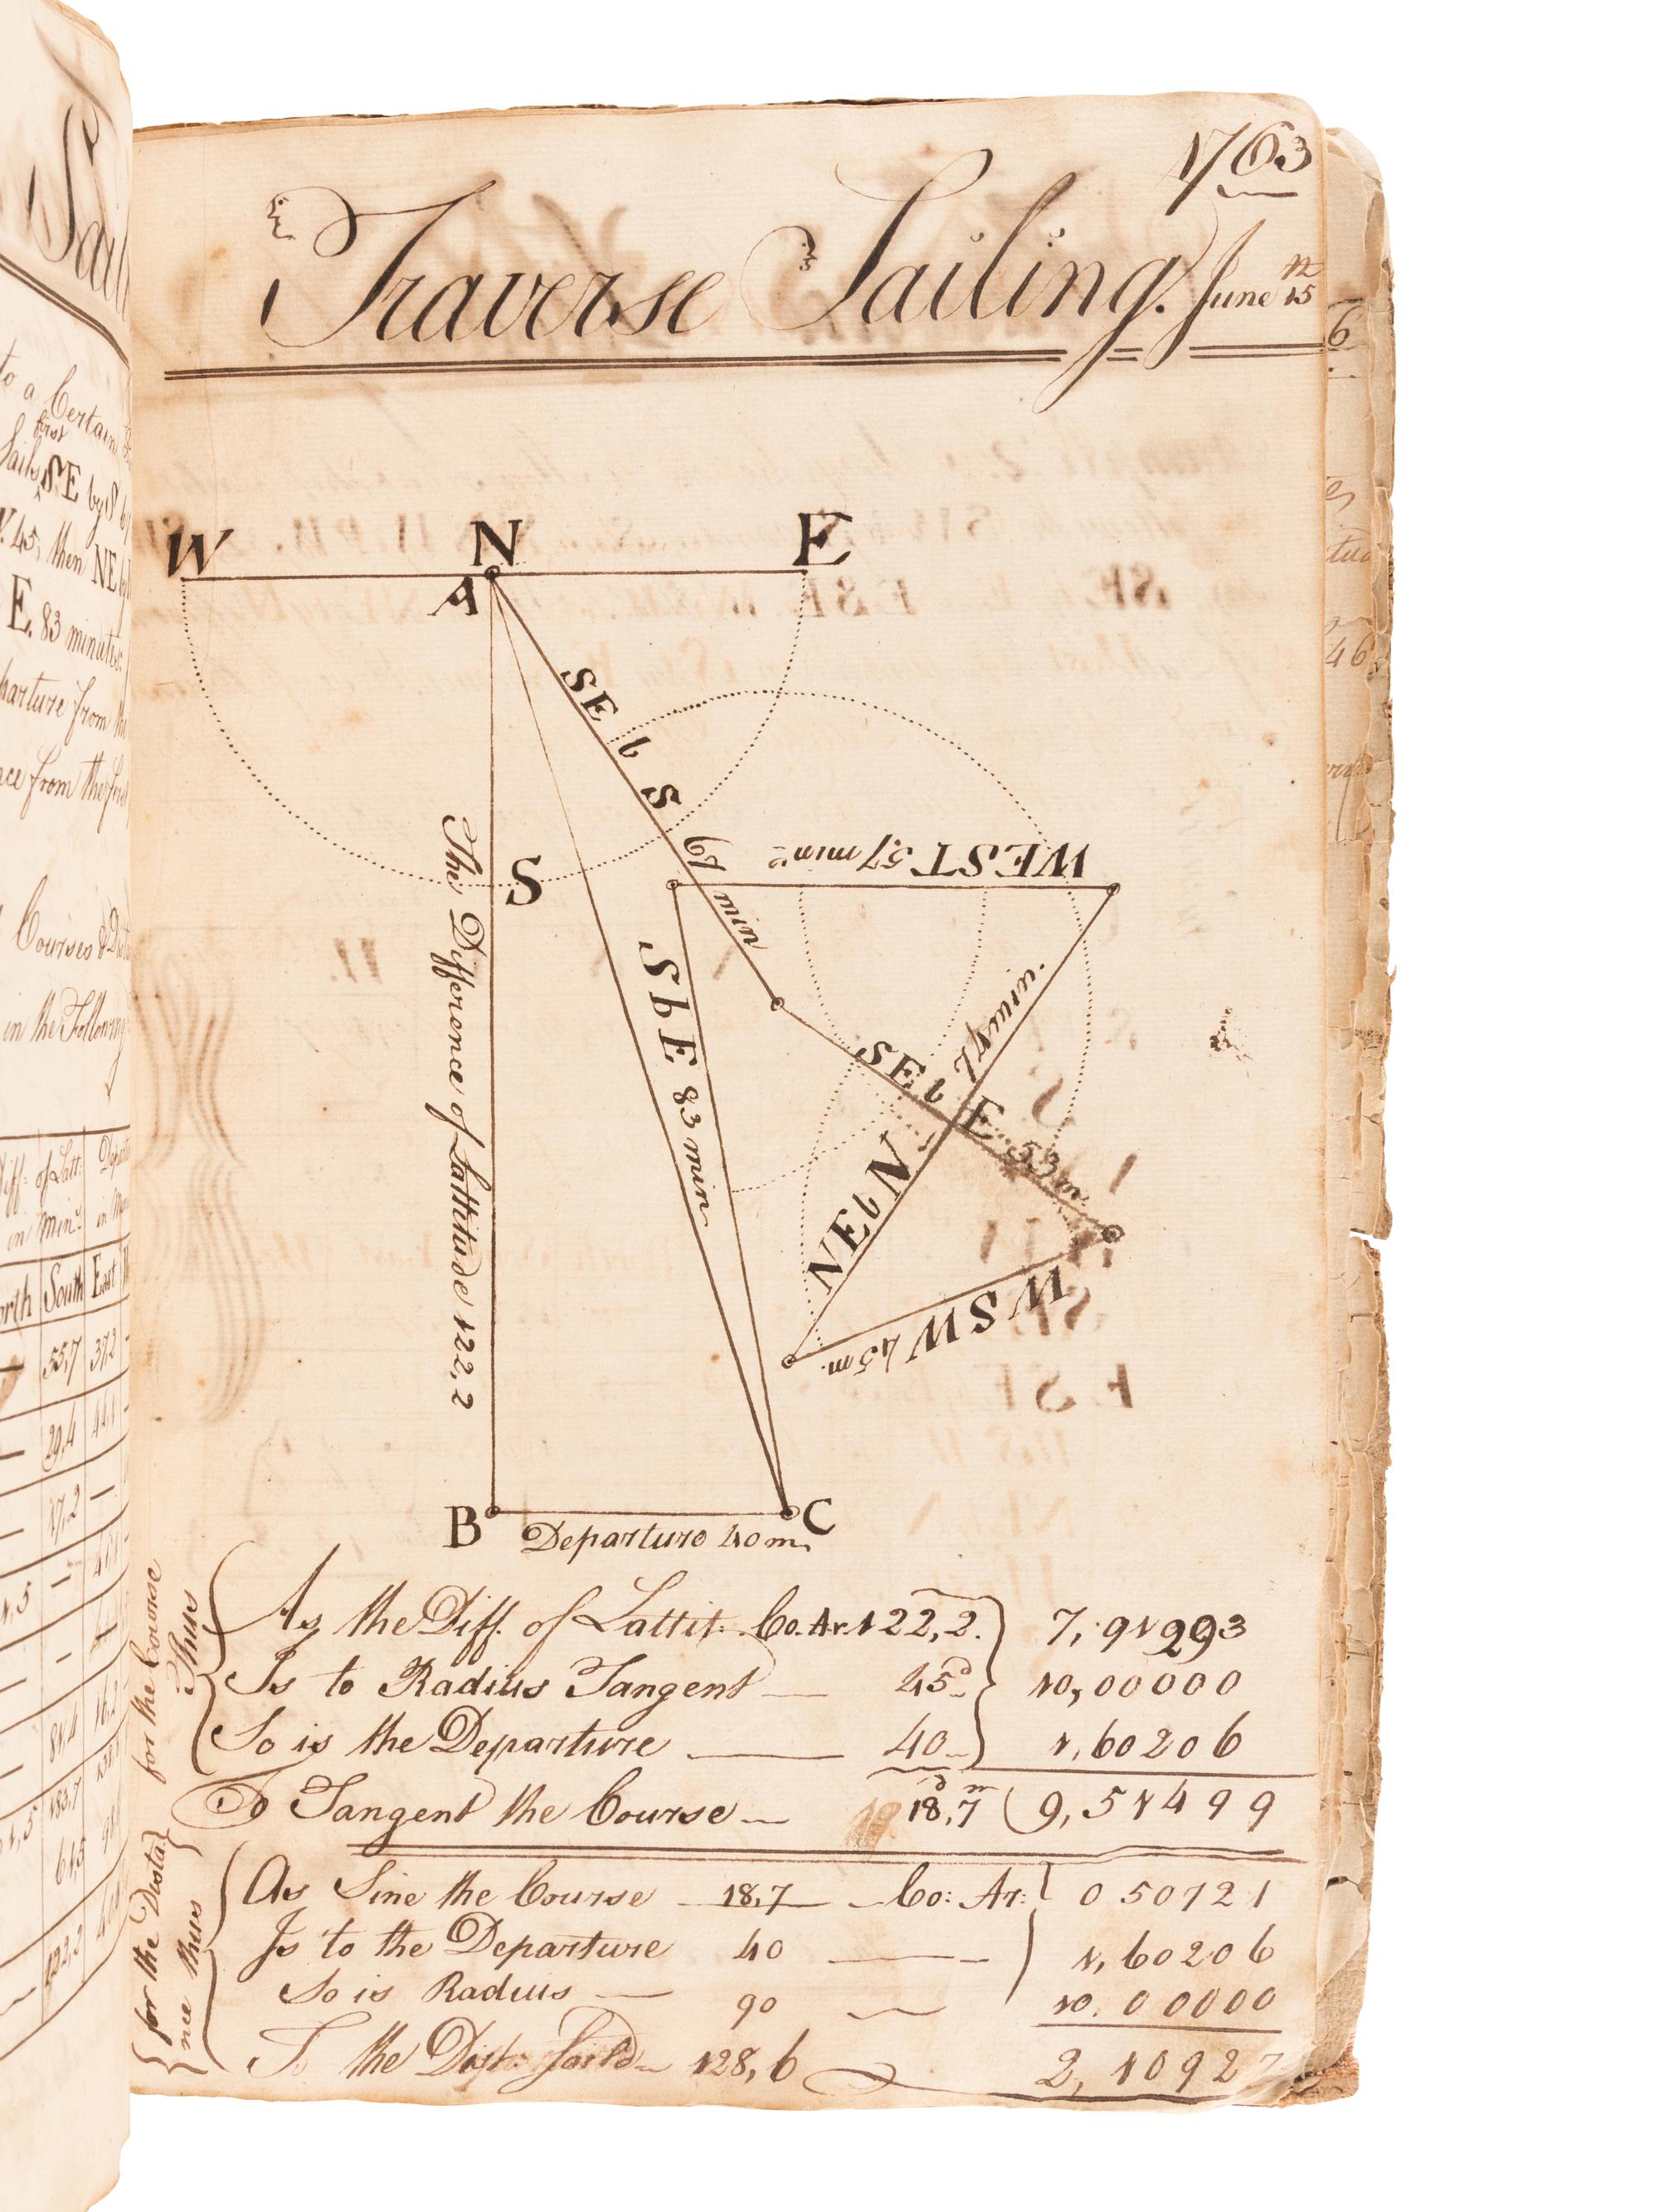 1763
Traverse Sailing. June 15
to a Certain
first
Sail SE by S
W. 45, then NE
E. 83 minutes
parture from the
nce from the first
Courses & Dist
in the Following
Diff: of Latt:
in Min:
North South East
55,7 37,2
29,4 44,1
17,2 —
—
81,4 16,2
183,7
61,5
122,2
W N E
A
S
SE b S 67 min
WEST 57 min
SbE 83 min
SE b E 53 m.
NE b N 74 min.
WSW 45 m.
The Difference of Lattitude 122,2
B C
Departure 40 m.
for the Course Thus
As the Diff. of Lattit: Co. Ar. 122,2. 7,91293
Is to Radius Tangent — 45d 10,00000
So is the Departure — 40 1,60206
To Tangent the Course — 18d,7m 9,51499
for the Distance thus
As Sine the Course — 18,7 — Co: Ar: 0 50721
Is to the Departure 40 — 1,60206
So is Radius — 90 — 10.00000
To the Dist: Sail'd — 128,6 2,10927